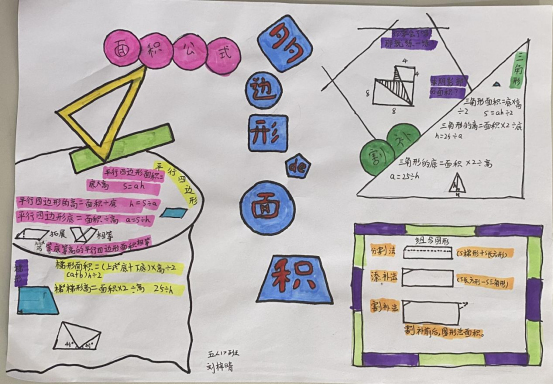 面积公式
多
边
形
de
面
积
平行四边形
平行四边形面积=
底×高 S=ah
平行四边形的高=面积÷底 h=S÷a
平行四边形底=面积÷高 a=S÷h
拓展
等底等高的平行四边形面积相等
梯形面积=(上底+下底)×高÷2
(a+b)h÷2
梯形高=面积×2÷
三角形
4
4
8
8
三角形面积=底×高
÷2 S=ah÷2
三角形的高=面积×2÷底
h=2S÷a
三角形的底=面积×2÷高
a=2S÷h
割补
组合图形
分割法
添补法
割补法
割补前后,图形法面积。
45° 45°
刘梓晴